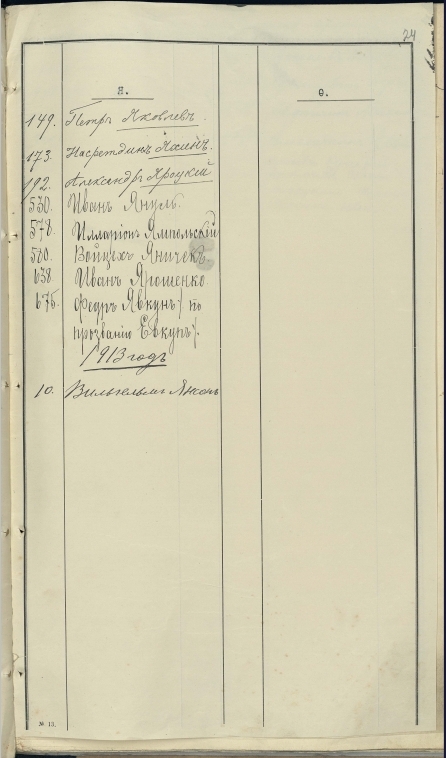 24
Я.
Ѳ.
149. Петръ Яковлевъ.
173. Насретдинъ Ясинъ.
192. Александръ Яроцкій
530. Иванъ Януль.
578. Илларіонъ Ямпольскій
580. Войцехъ Яничекъ.
638. Иванъ Ярошенко.
675. Федръ Явкунъ / по
прозванію Евкунъ /.
1913 годъ
10. Вильгельмъ Янсонъ
№ 13.